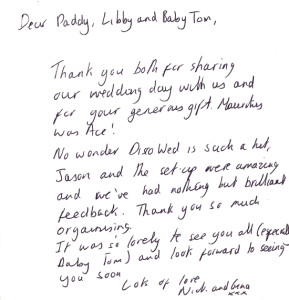 Dear Paddy, Libby and Baby Tom,
Thank you both for sharing
our wedding day with us and
for your generous gift. Mauritius
was Ace!
No wonder DiscoWed is such a hit,
Jason and the set-up were amazing
and we've had nothing but brilliant
feedback. Thank you so much
organising.
It was so lovely to see you all (especial
Baby Tom) and look forward to seeing
you soon
Lots of love
Nick and
xxx